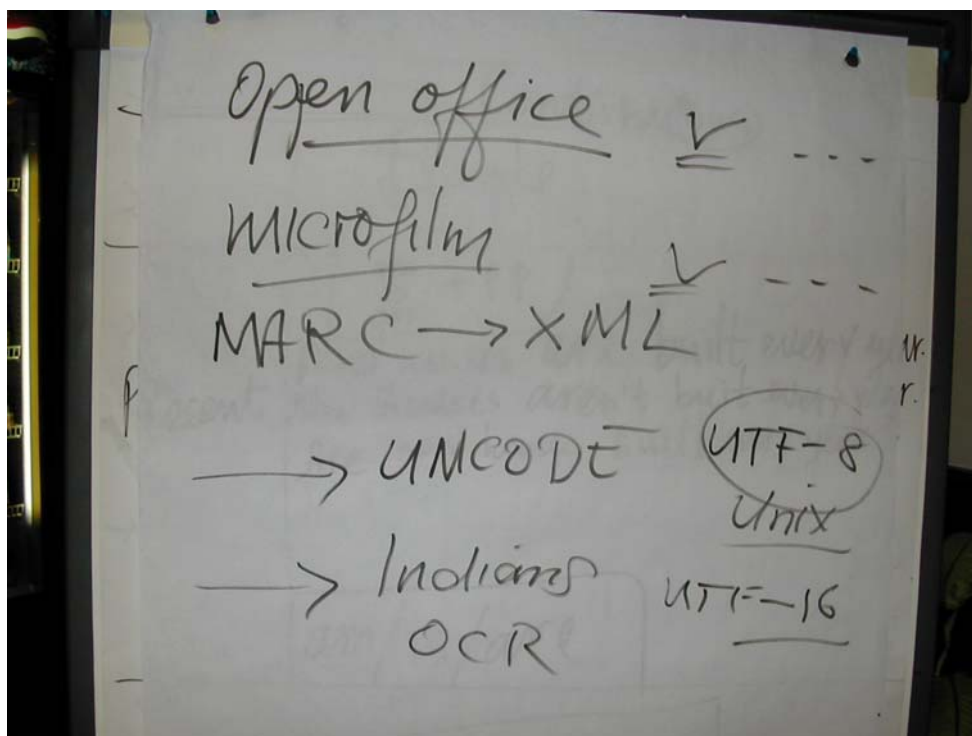 Open office
microfilm
MARC → XML
→ UNICODE UTF-8
Unix
→ Indians UTF-16
OCR